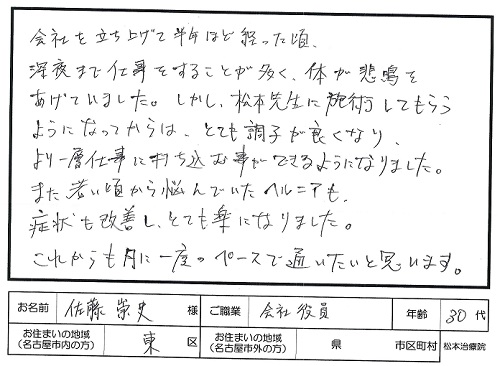 会社を立ち上げて半年ほど経った頃、
深夜まで仕事をすることが多く、体が悲鳴を
あげていました。しかし、松本先生に施術してもらう
ようになってからは、とても調子が良くなり、
より一層仕事に打ち込む事ができるようになりました。
また若い頃から悩んでいたヘルニアも、
症状も改善し、とても楽になりました。
これからも月に一度のペースで通いたいと思います。
お名前 佐藤 崇史 様 ご職業 会社役員 年齢 30代
お住まいの地域 (名古屋市内の方) 東 区 お住まいの地域 (名古屋市外の方) 県 市区町村 松本治療院